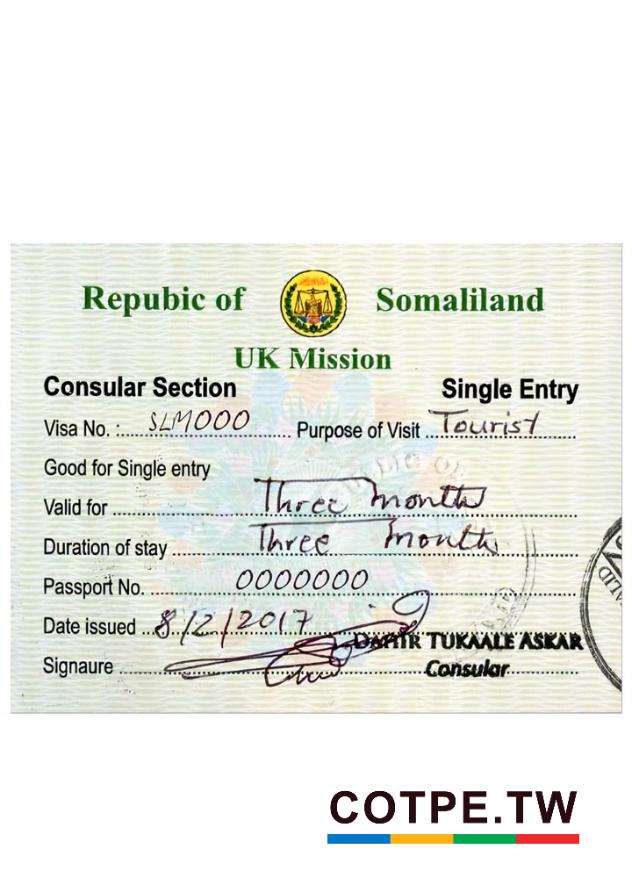 Repubic of Somaliland
UK Mission
Consular Section Single Entry
Visa No. : SLM000 Purpose of Visit Tourist
Good for Single entry
Valid for Three months
Duration of stay Three months
Passport No. 0000000
Date issued 8/2/2017
DAHIR TUKAALE ASKAR
Signaure Consular
COTPE.TW